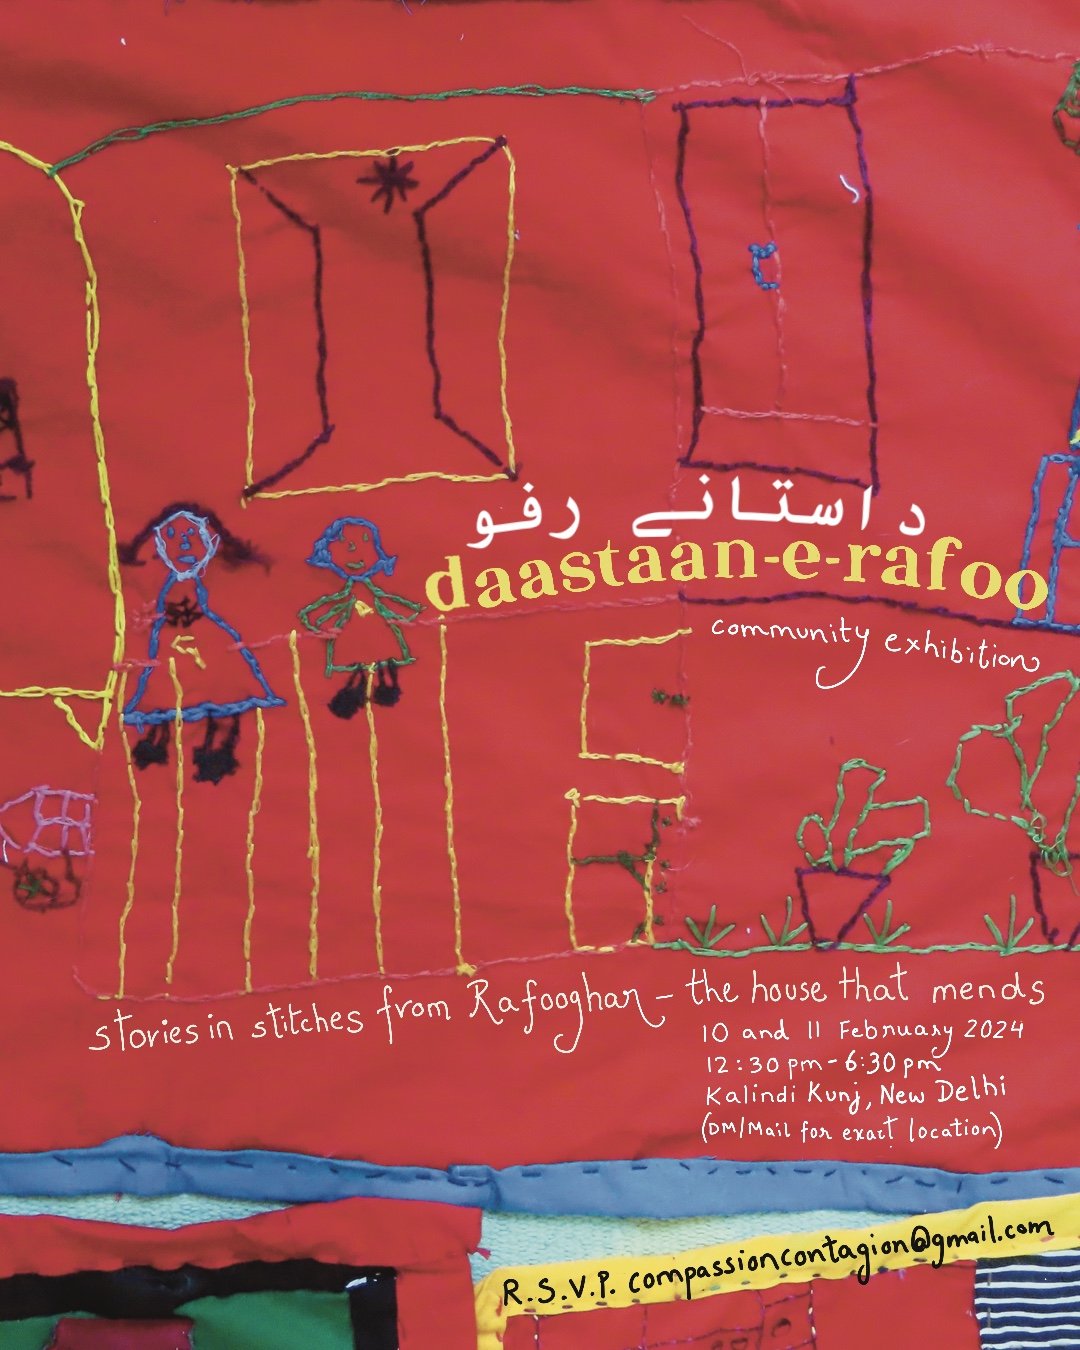 داستانے رفو
daastaan-e-rafoo
community exhibition
stories in stitches from Rafooghar - the house that mends
10 and 11 February 2024
12:30 pm - 6:30 pm
Kalindi Kunj, New Delhi
(DM/Mail for exact location)
R.S.V.P. compassioncontagion@gmail.com